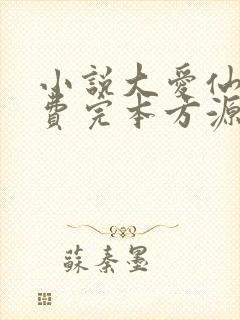 小説大愛仙
費完本方源
蘇秦墨